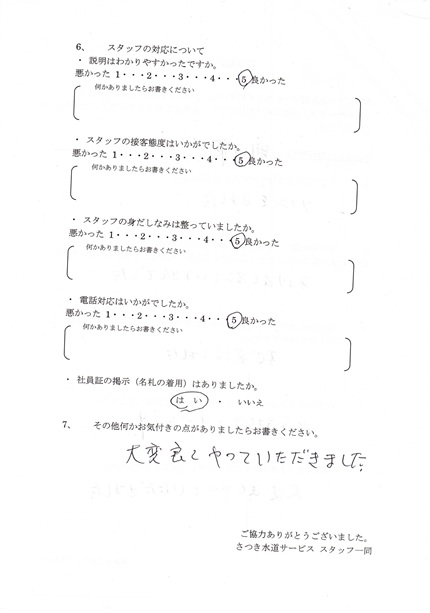 6、 スタッフの対応について
・ 説明はわかりやすかったですか。
悪かった 1・・・2・・・3・・・4・・・5良かった
何かありましたらお書きください
・ スタッフの接客態度はいかがでしたか。
悪かった 1・・・2・・・3・・・4・・・5良かった
何かありましたらお書きください
・ スタッフの身だしなみは整っていましたか。
悪かった 1・・・2・・・3・・・4・・・5良かった
何かありましたらお書きください
・ 電話対応はいかがでしたか。
悪かった 1・・・2・・・3・・・4・・・5良かった
何かありましたらお書きください
・ 社員証の掲示（名札の着用）はありましたか。
はい ・ いいえ
7、 その他何かお気付きの点がありましたらお書きください。
大変良くやっていただきました
ご協力ありがとうございました。
さつき水道サービス スタッフ一同